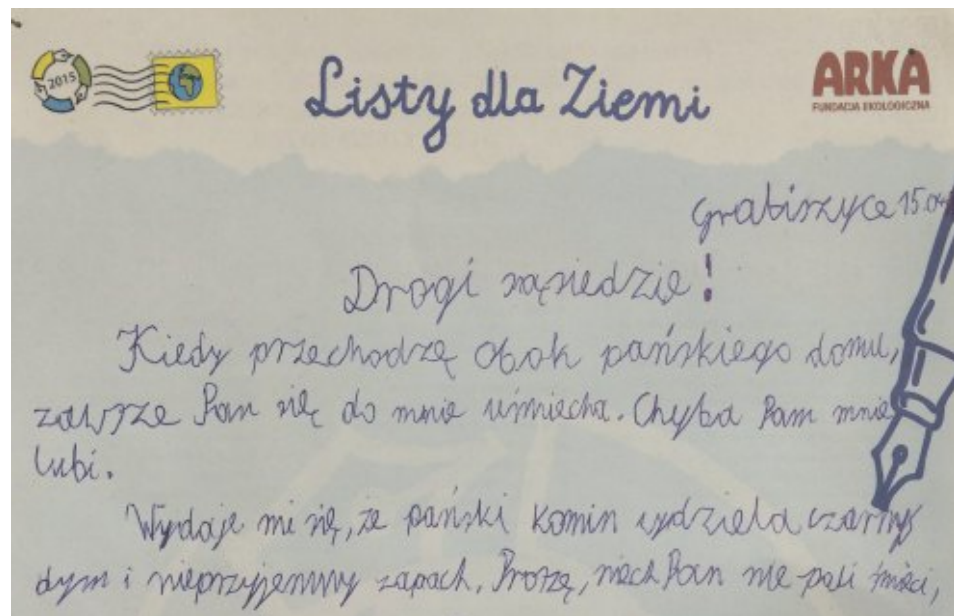 2015
Listy dla Ziemi
ARKA
FUNDACJA EKOLOGICZNA
Grabiszyce 15.04
Drogi sąsiedzie!
Kiedy przechodzę obok pańskiego domu,
zawsze Pan się do mnie uśmiecha. Chyba Pan mnie
lubi.
Wydaje mi się, że pański komin wydziela czarny
dym i nieprzyjemny zapach. Proszę, niech Pan nie pali śmieci,